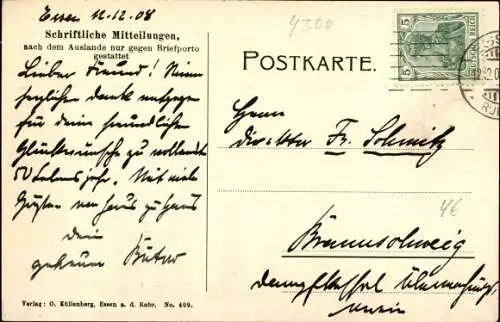 Essen 12.12.08
Schriftliche Mitteilungen,
nach dem Auslande nur gegen Briefporto
gestattet
Lieber Freund! Nimm
herzlichen Dank entgegen
für deine freundlichen
Glückwünsche zu vollendeten
50 Lebensjahr. Mit vielen
Grüßen von Haus zu Haus
dein
getreuer
Verlag: O. Küllenberg, Essen a. d. Ruhr. No. 409.
4300
POSTKARTE.
5 DEUTSCHES REICH 5
Herrn
Direktor Fr. Schmitz
4€
Braunschweig
Dampfkessel Überwachungs
verein